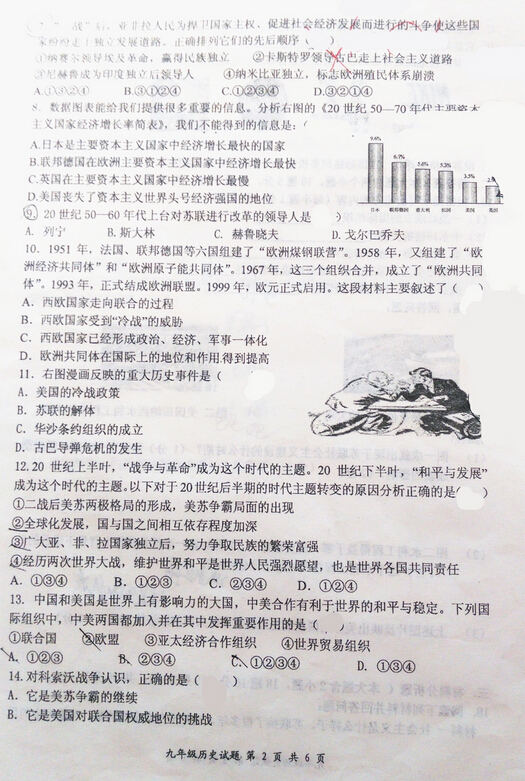 "二战"后，亚非拉人民为捍卫国家主权、促进社会经济发展而进行的斗争使这些国
家纷纷走上独立发展道路。正确排列它们的先后顺序（
①纳赛尔领导埃及革命，赢得民族独立 ②卡斯特罗领导古巴走上社会主义道路
③尼赫鲁成为印度独立后领导人 ④纳米比亚独立，标志欧洲殖民体系崩溃
A.①③②④ B.③①②④ C.①②③④ D.③②①④
8. 数据图表能给我们提供很多重要的信息。分析右图的《20世纪50—70年代主要资本
主义国家经济增长率简表》，我们不能得到的信息是：（
A.日本是主要资本主义国家中经济增长最快的国家
B.联邦德国在欧洲主要资本主义国家中经济增长最快
C.英国在主要资本主义国家中经济增长最慢
D.美国丧失了资本主义世界头号经济强国的地位
9.6%
6.7%
5.6%
5.5%
3.5%
日本 联邦德国 意大利 法国 美国 英国
9. 20世纪50—60年代上台对苏联进行改革的领导人是 ）
A. 列宁 B. 斯大林 C. 赫鲁晓夫 D. 戈尔巴乔夫
10. 1951 年，法国、联邦德国等六国组建了“欧洲煤钢联营”。1958 年，又组建了“欧
洲经济共同体”和“欧洲原子能共同体”。1967 年，这三个组织合并，成立了“欧洲共同
体”。1993 年，正式结成欧洲联盟。1999 年，欧元正式启用。这段材料主要叙述了（ ）
A. 西欧国家走向联合的过程
B. 西欧国家受到“冷战”的威胁
C. 西欧国家已经形成政治、经济、军事一体化
D. 欧洲共同体在国际上的地位和作用得到提高
11. 右图漫画反映的重大历史事件是（
A. 美国的冷战政策
B. 苏联的解体
C. 华沙条约组织的成立
D. 古巴导弹危机的发生
12.20 世纪上半叶，“战争与革命”成为这个时代的主题。20 世纪下半叶，“和平与发展”
成为这个时代的主题。以下对于20世纪后半期的时代主题转变的原因分析正确的是（ ）
①二战后美苏两极格局的形成，美苏争霸局面的出现
②全球化发展，国与国之间相互依存程度加深
③广大亚、非、拉国家独立后，努力争取民族的繁荣富强
④经历两次世界大战，维护世界和平是世界人民强烈愿望，也是世界各国共同责任
A. ①③④ B. ①②③ C. ②③④ D. ①②④
13. 中国和美国是世界上有影响力的大国，中美合作有利于世界的和平与稳定。下列国
际组织中，中美两国都加入并在其中发挥重要作用的是（ ）
①联合国 ②欧盟 ③亚太经济合作组织 ④世界贸易组织
A. ①②③ B. ②③④ C. ①②④ D. ①③④
14. 对科索沃战争认识，正确的是（ ）
A. 它是美苏争霸的继续
B. 它是美国对联合国权威地位的挑战
九年级历史试题 第 2 页 共 6 页